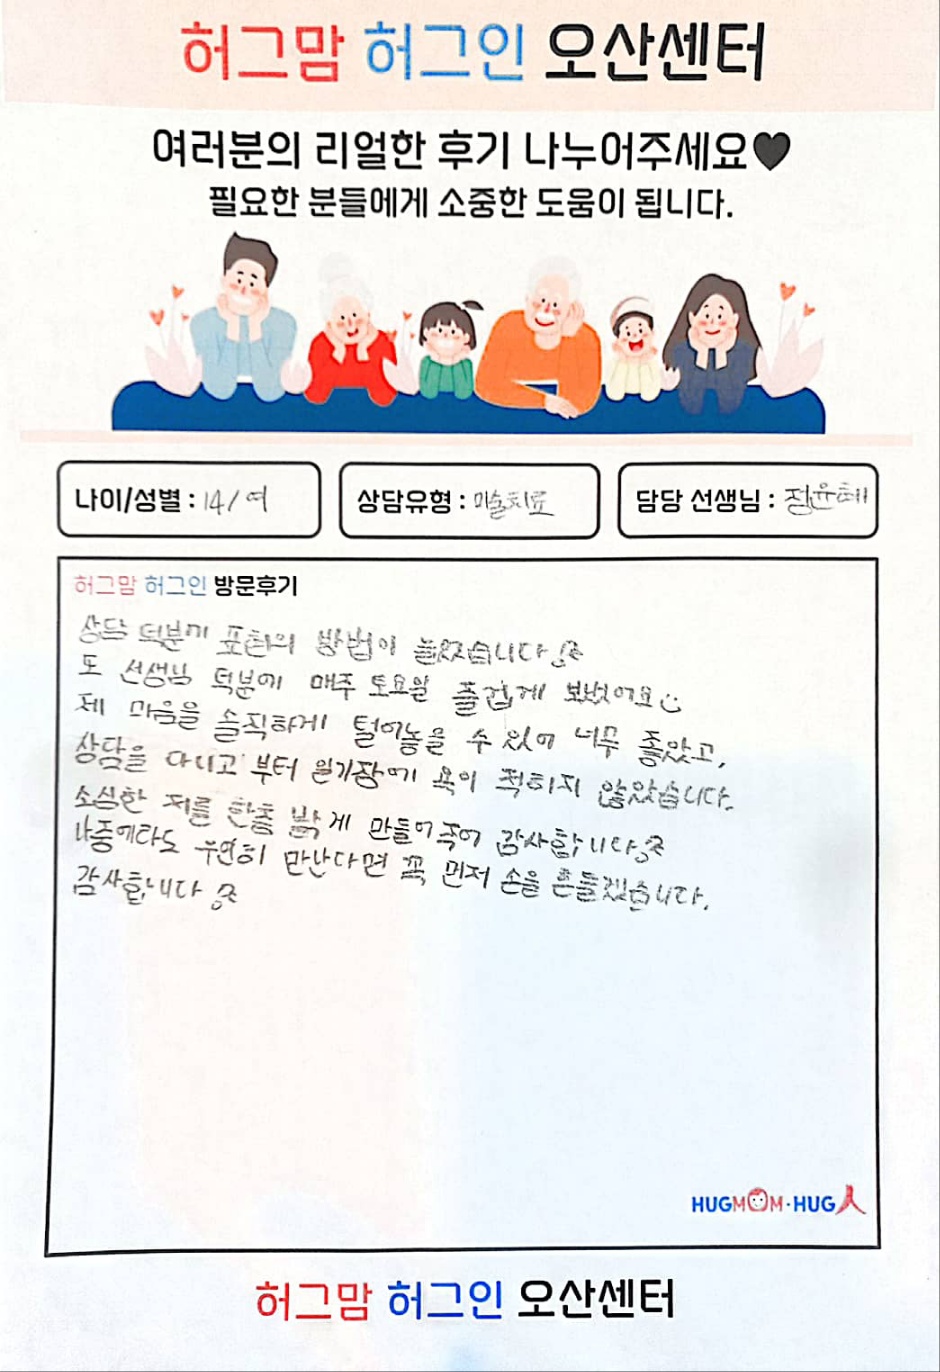 허그맘 허그인 오산센터
여러분의 리얼한 후기 나누어주세요♥
필요한 분들에게 소중한 도움이 됩니다.
나이/성별 : 14/여
상담유형 : 미술치료
담당 선생님 : 정윤혜
허그맘 허그인 방문후기
상담 덕분에 표현의 방법이 늘었습니다
또 선생님 덕분에 매주 토요일 즐겁게 보냈어요☺
제 마음을 솔직하게 털어놓을 수 있어 너무 좋았고,
상담을 다니고 부터 일기장에 욕이 적히지 않았습니다.
소심한 저를 한층 밝게 만들어주어 감사합니다
나중에라도 우연히 만난다면 꼭 먼저 손을 흔들겠습니다.
감사합니다
HUGMOM·HUG人
허그맘 허그인 오산센터